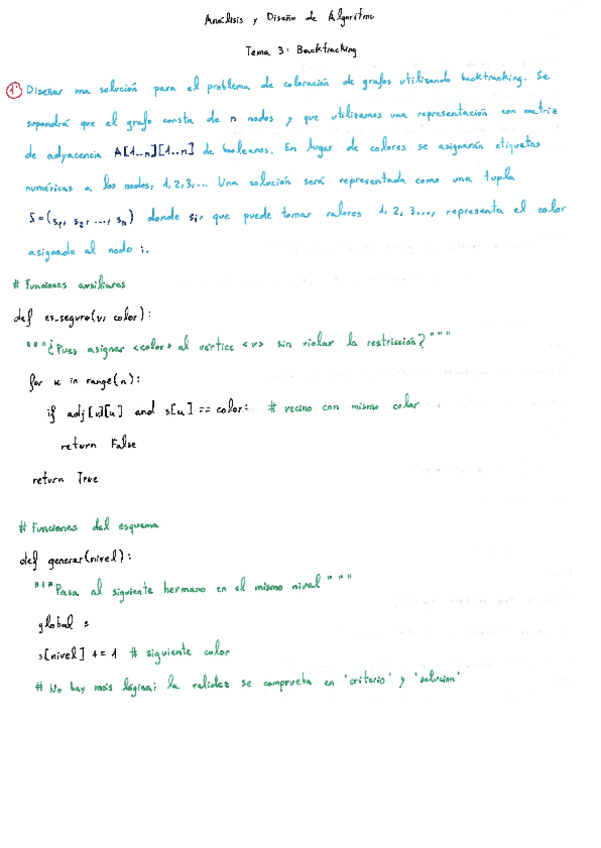 Análisis y Diseño de Algoritmo
Tema 3: Backtracking
1º Diseñar una solución para el problema de coloración de grafos utilizando backtracking. Se
supondrá que el grafo consta de n nodos y que utilizamos una representación con matriz
de adyacencia A[1..n][1..n] de booleanos. En lugar de colores se asignarán etiquetas
numéricas a los nodos, 1, 2, 3,... Una solución será representada como una tupla
S = (s₁, s₂, ..., sₙ) donde sᵢ, que puede tomar valores 1, 2, 3..., representa el color
asignado al nodo i.
# Funciones auxiliares
def es_seguro(v, color):
"""¿Pues asignar <color> al vértice <v> sin violar la restricción?"""
for u in range(n):
if adj[v][u] and s[u] == color: # vecino con mismo color
return False
return True
# Funciones del esquema
def generar(nivel):
"""Pasa al siguiente hermano en el mismo nivel"""
global s
s[nivel] += 1 # siguiente color
# No hay más lógica; la validez se comprueba en 'criterio' y 'solucion'